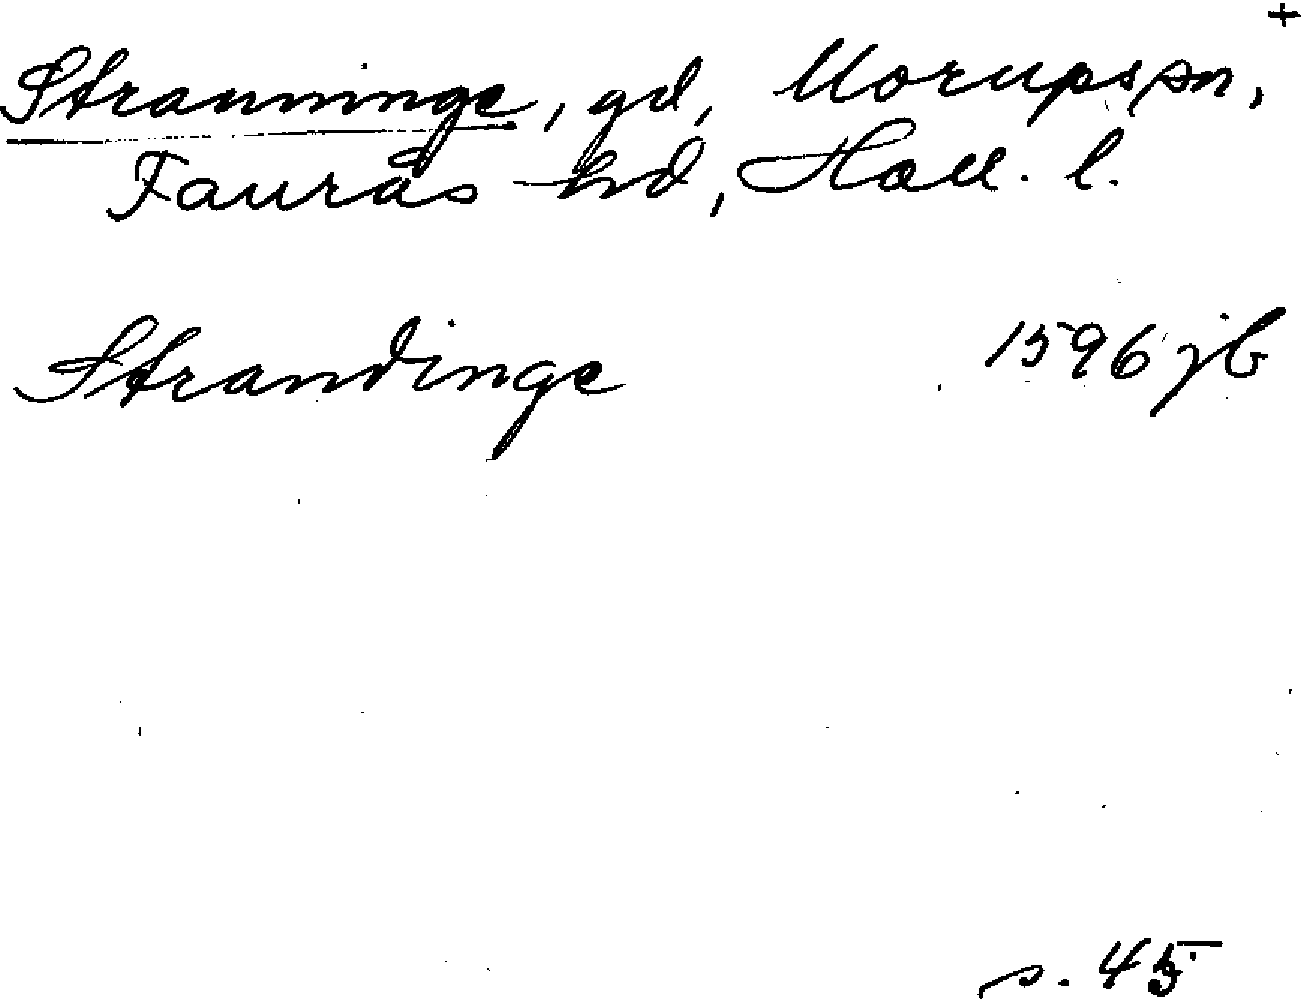 +
Stranninge, gd, Morups sn,
Faurås hd, Hall. l.
Strandinge 1596 jb
s. 45